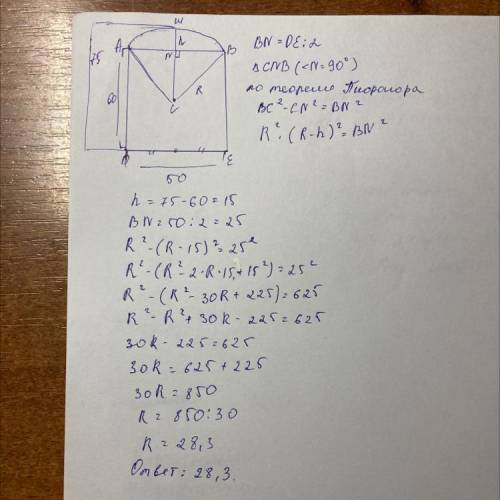 W
A
h
B
N
75
60
R
C
E
50
BN = DE : 2
△CNB (<N=90°)
по теореме Пифагора
BC² - CN² = BN²
R² - (R-h)² = BN²
h = 75 - 60 = 15
BN = 50 : 2 = 25
R² - (R - 15)² = 25²
R² - (R² - 2·R·15 + 15²) = 25²
R² - (R² - 30R + 225) = 625
R² - R² + 30R - 225 = 625
30R - 225 = 625
30R = 625 + 225
30R = 850
R = 850 : 30
R = 28,3
Ответ: 28,3.